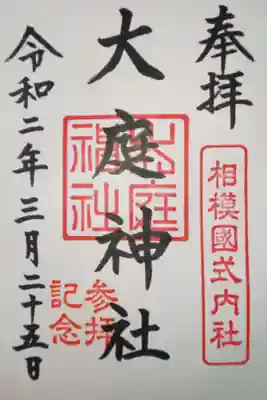 奉拝
相模國式内社
大庭神社
大庭神社
参拝
記念
令和二年三月二十五日